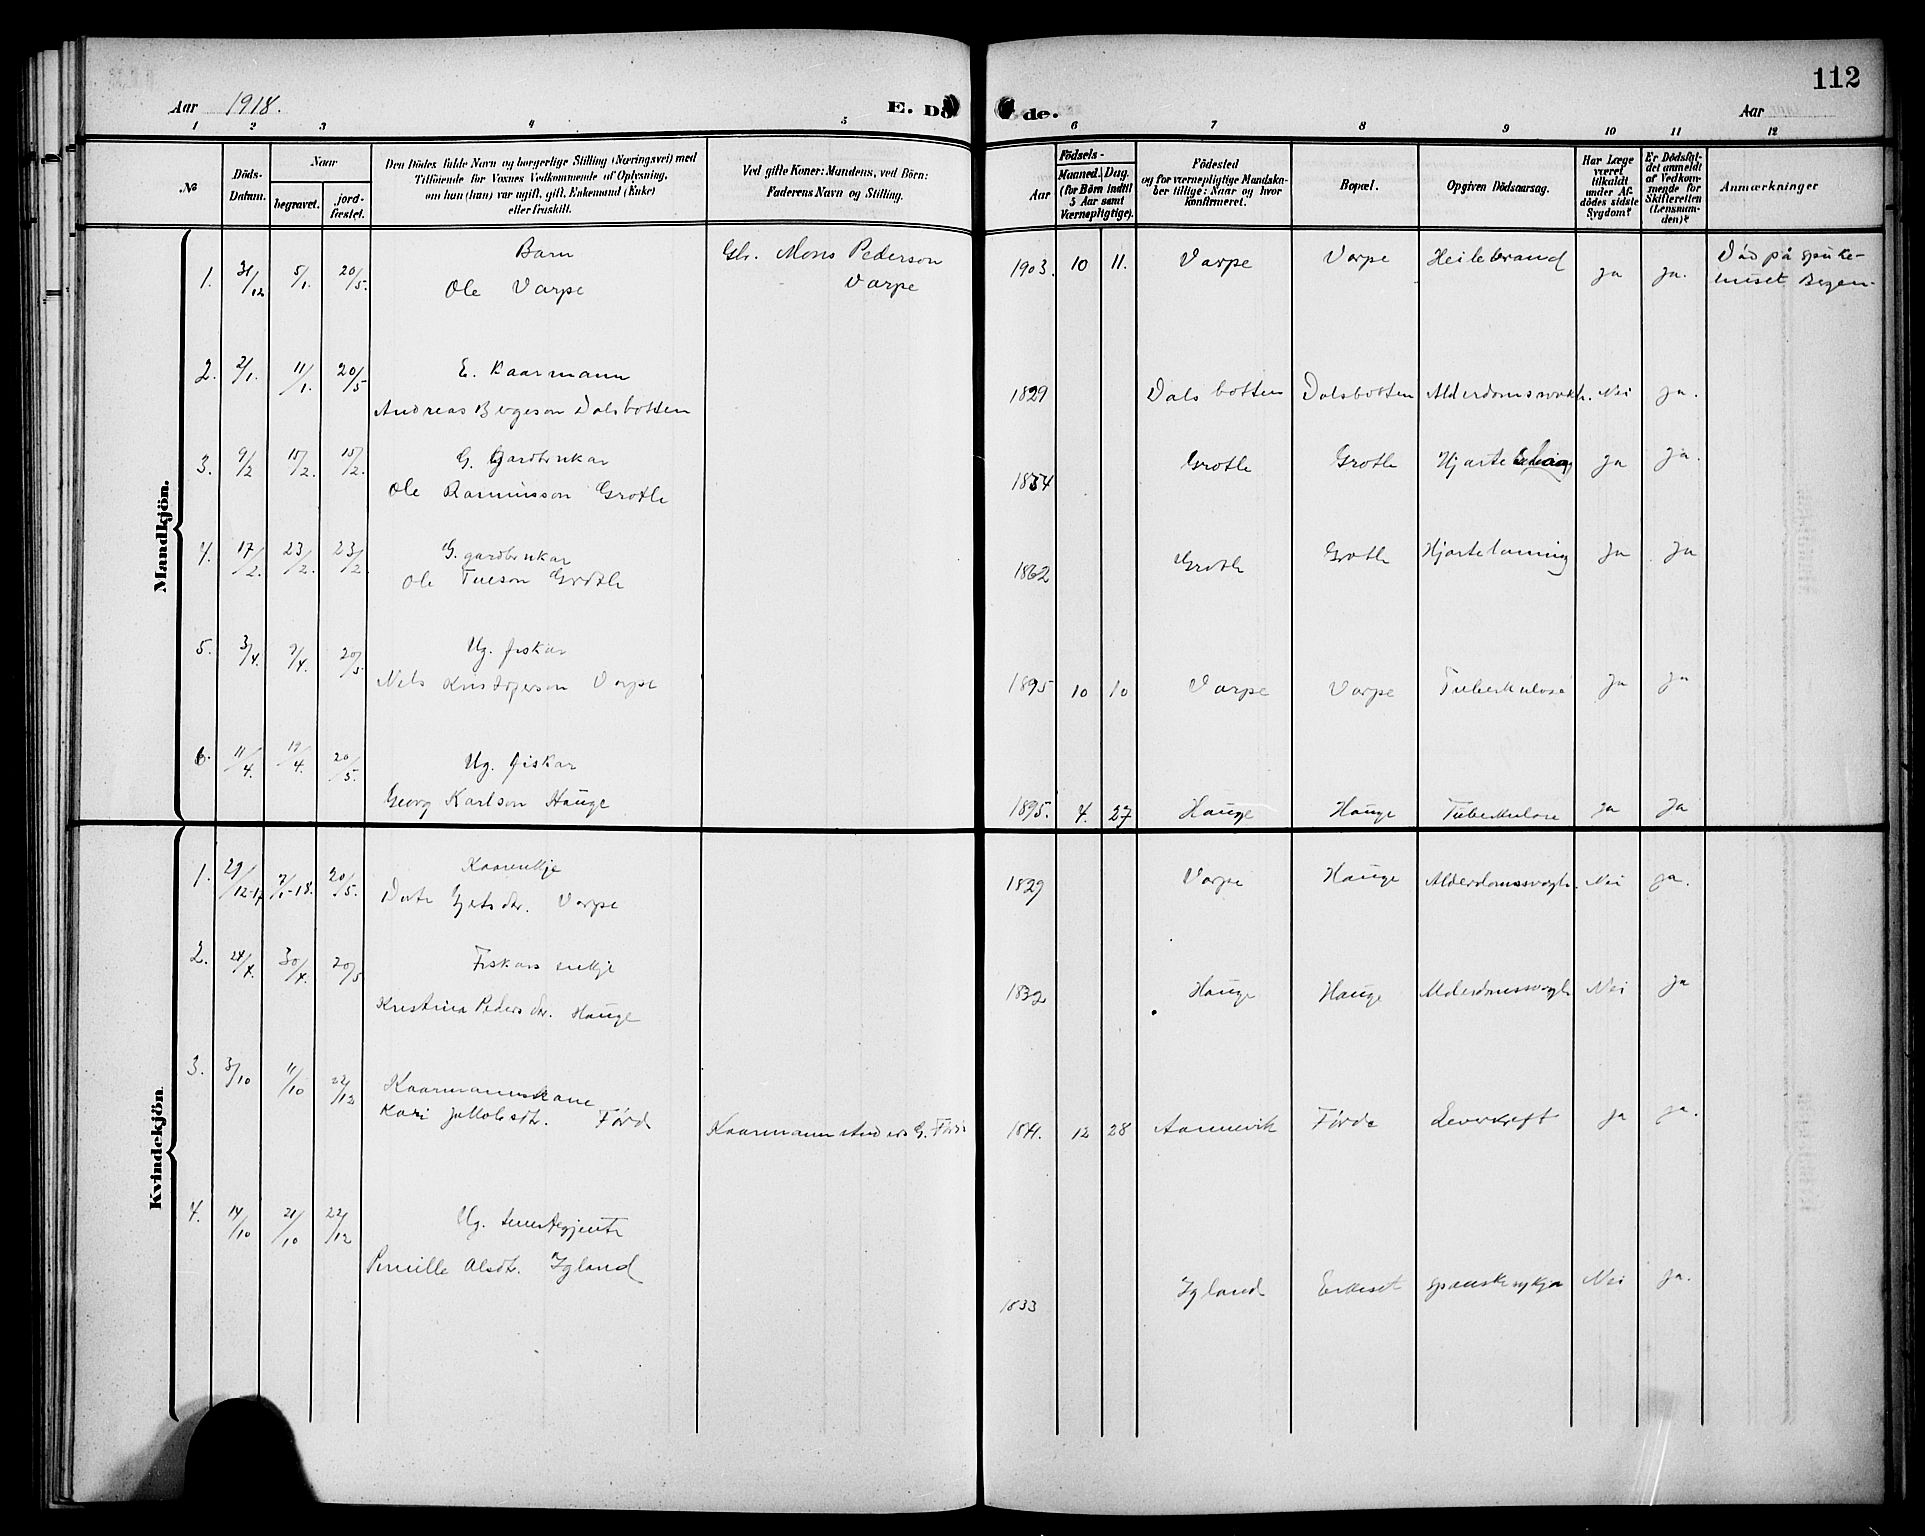 112
Aar 1918.
E. Dö de.
Aar
1 2 3 4 5 6 7 8 9 10 11 12
No
Döds-Datum.
Naar
begravet.
jord-fæstet.
Den Dödes fulde Navn og borgerlige Stilling (Næringsvei) med
Tilföiende for Voxnes Vedkommende af Oplysning,
om hun (han) var ugift, gift, Enkemand (Enke)
eller fraskilt.
Ved gifte Koner: Mandens, ved Börn:
Faderens Navn og Stilling.
Födsels-
Aar
Maaned. Dag.
(for Börn indtil
5 Aar samt
Værnepligtige).
Födested
og for værnepligtige Mandska-
ber tillige: Naar og hvor
konfirmeret.
Bopæl.
Opgiven Dödsaarsag.
Har Læge
været
tilkaldt
under Af-
dödes sidste
Sygdom?
Er Dödsfal-
det anmeldt
af Vedkom-
mende for
Skifteretten
(Lensman-
den)?
Anmærkninger
Mandkjön.
1. 31/12 5/1. 20/5. Barn Gbr. Mons Pederson 1903. 10 11. Varpe Varpe Heilebrand ja ja. Død på sjuke-
Ole Varpe Varpe huset Bergen
2. 2/1. 11/1. 20/5 E. Kaarmann
Andreas Bergeson Dalsbotten 1829 Dalsbotten Dalsbotten Nei ja.
3. 9/2 15/2. 15/2. G. Gardbrukar
Ole Rasmusson Grotle 1854 Grotle Grotle ja ja.
4. 17/2. 23/2. 23/2 G. gardbrukar
Ole Grotle 1862 Grotle Grotle Hjartelaming ja ja
5. 3/4. 9/4. 20/5 Ug. fiskar
Nils Varpe 1895 10 10 Varpe Varpe Tuberkulose ja ja
6. 11/4. 19/4. 20/5. Ug. fiskar
Georg Karlson Hauge 1895. 4. 27 Hauge Hauge Tuberkulose ja ja
Kvindekjön
1. 29/12-17 7/1-18. 20/5. Kaarenkje
Varpe 1829 Varpe Hauge Nei ja.
2. 24/4. 30/4. 20/5 Fiskars enkje
Kristina Pedersdr. Hauge 1832 Hauge Hauge Nei ja
3. 3/10 11/10 22/12 Kaarmannskone
Kari Jakobsdt. Førd Kaarmann Anders G. Førde 1841. 12 28 Aannevik Førde Leverkreft ja ja.
4. 14/10 21/10 22/12 Ug. tenestegjente
Pernille Olsdt. Igland 1833 Igland Erkeset spanskesykja Nei ja.